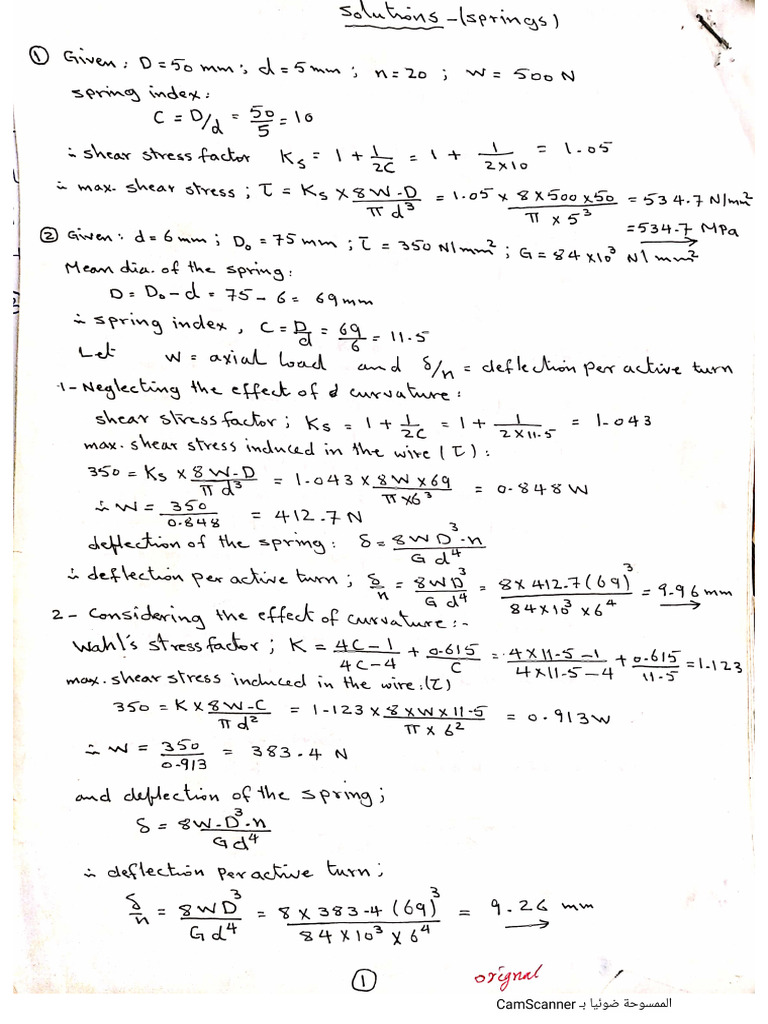 Solutions - (springs)
① Given : D = 50 mm ; d = 5 mm ; n = 20 ; W = 500 N
spring index :
C = D/d = 50/5 = 10
∴ shear stress factor Ks = 1 + 1/2C = 1 + 1/2×10 = 1.05
∴ max. shear stress ; τ = Ks × 8W.D/πd³ = 1.05 × 8×500×50/π×5³ = 534.7 N/mm²
= 534.7 MPa
② Given : d = 6 mm ; Do = 75 mm ; τ = 350 N/mm² ; G = 84×10³ N/mm²
Mean dia. of the spring :
D = Do - d = 75 - 6 = 69 mm
∴ spring index , C = D/d = 69/6 = 11.5
Let W = axial load and δ/n = deflection per active turn
1 - Neglecting the effect of curvature :
shear stress factor ; Ks = 1 + 1/2C = 1 + 1/2×11.5 = 1.043
max. shear stress induced in the wire (τ) :
350 = Ks × 8W.D/πd³ = 1.043 × 8W×69/π×6³ = 0.848 W
∴ W = 350/0.848 = 412.7 N
deflection of the spring : δ = 8WD³.n/Gd⁴
∴ deflection per active turn ; δ/n = 8WD³/Gd⁴ = 8×412.7(69)³/84×10³×6⁴ = 9.96 mm
2 - Considering the effect of curvature :-
Wahl's stress factor ; K = 4C-1/4C-4 + 0.615/C = 4×11.5-1/4×11.5-4 + 0.615/11.5 = 1.123
max. shear stress induced in the wire : (τ)
350 = K × 8W.C/πd² = 1.123 × 8×W×11.5/π×6² = 0.913 W
∴ W = 350/0.913 = 383.4 N
and deflection of the spring ;
δ = 8W.D³.n/Gd⁴
∴ deflection per active turn ;
δ/n = 8WD³/Gd⁴ = 8×383.4(69)³/84×10³×6⁴ = 9.26 mm
①
orignal
الممسوحة ضوئيا بـ CamScanner